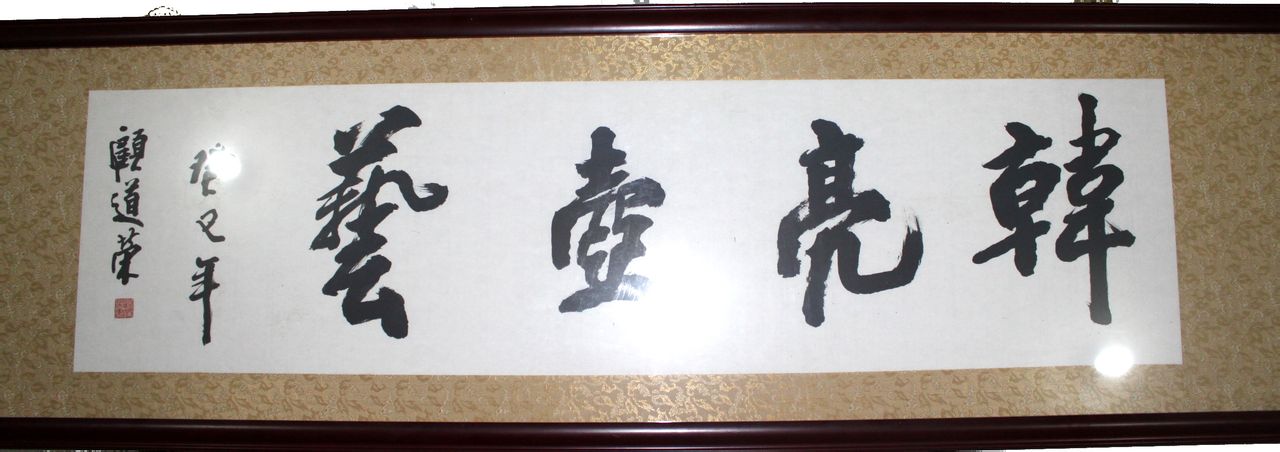 韓亮壺藝
癸巳年
顧道榮